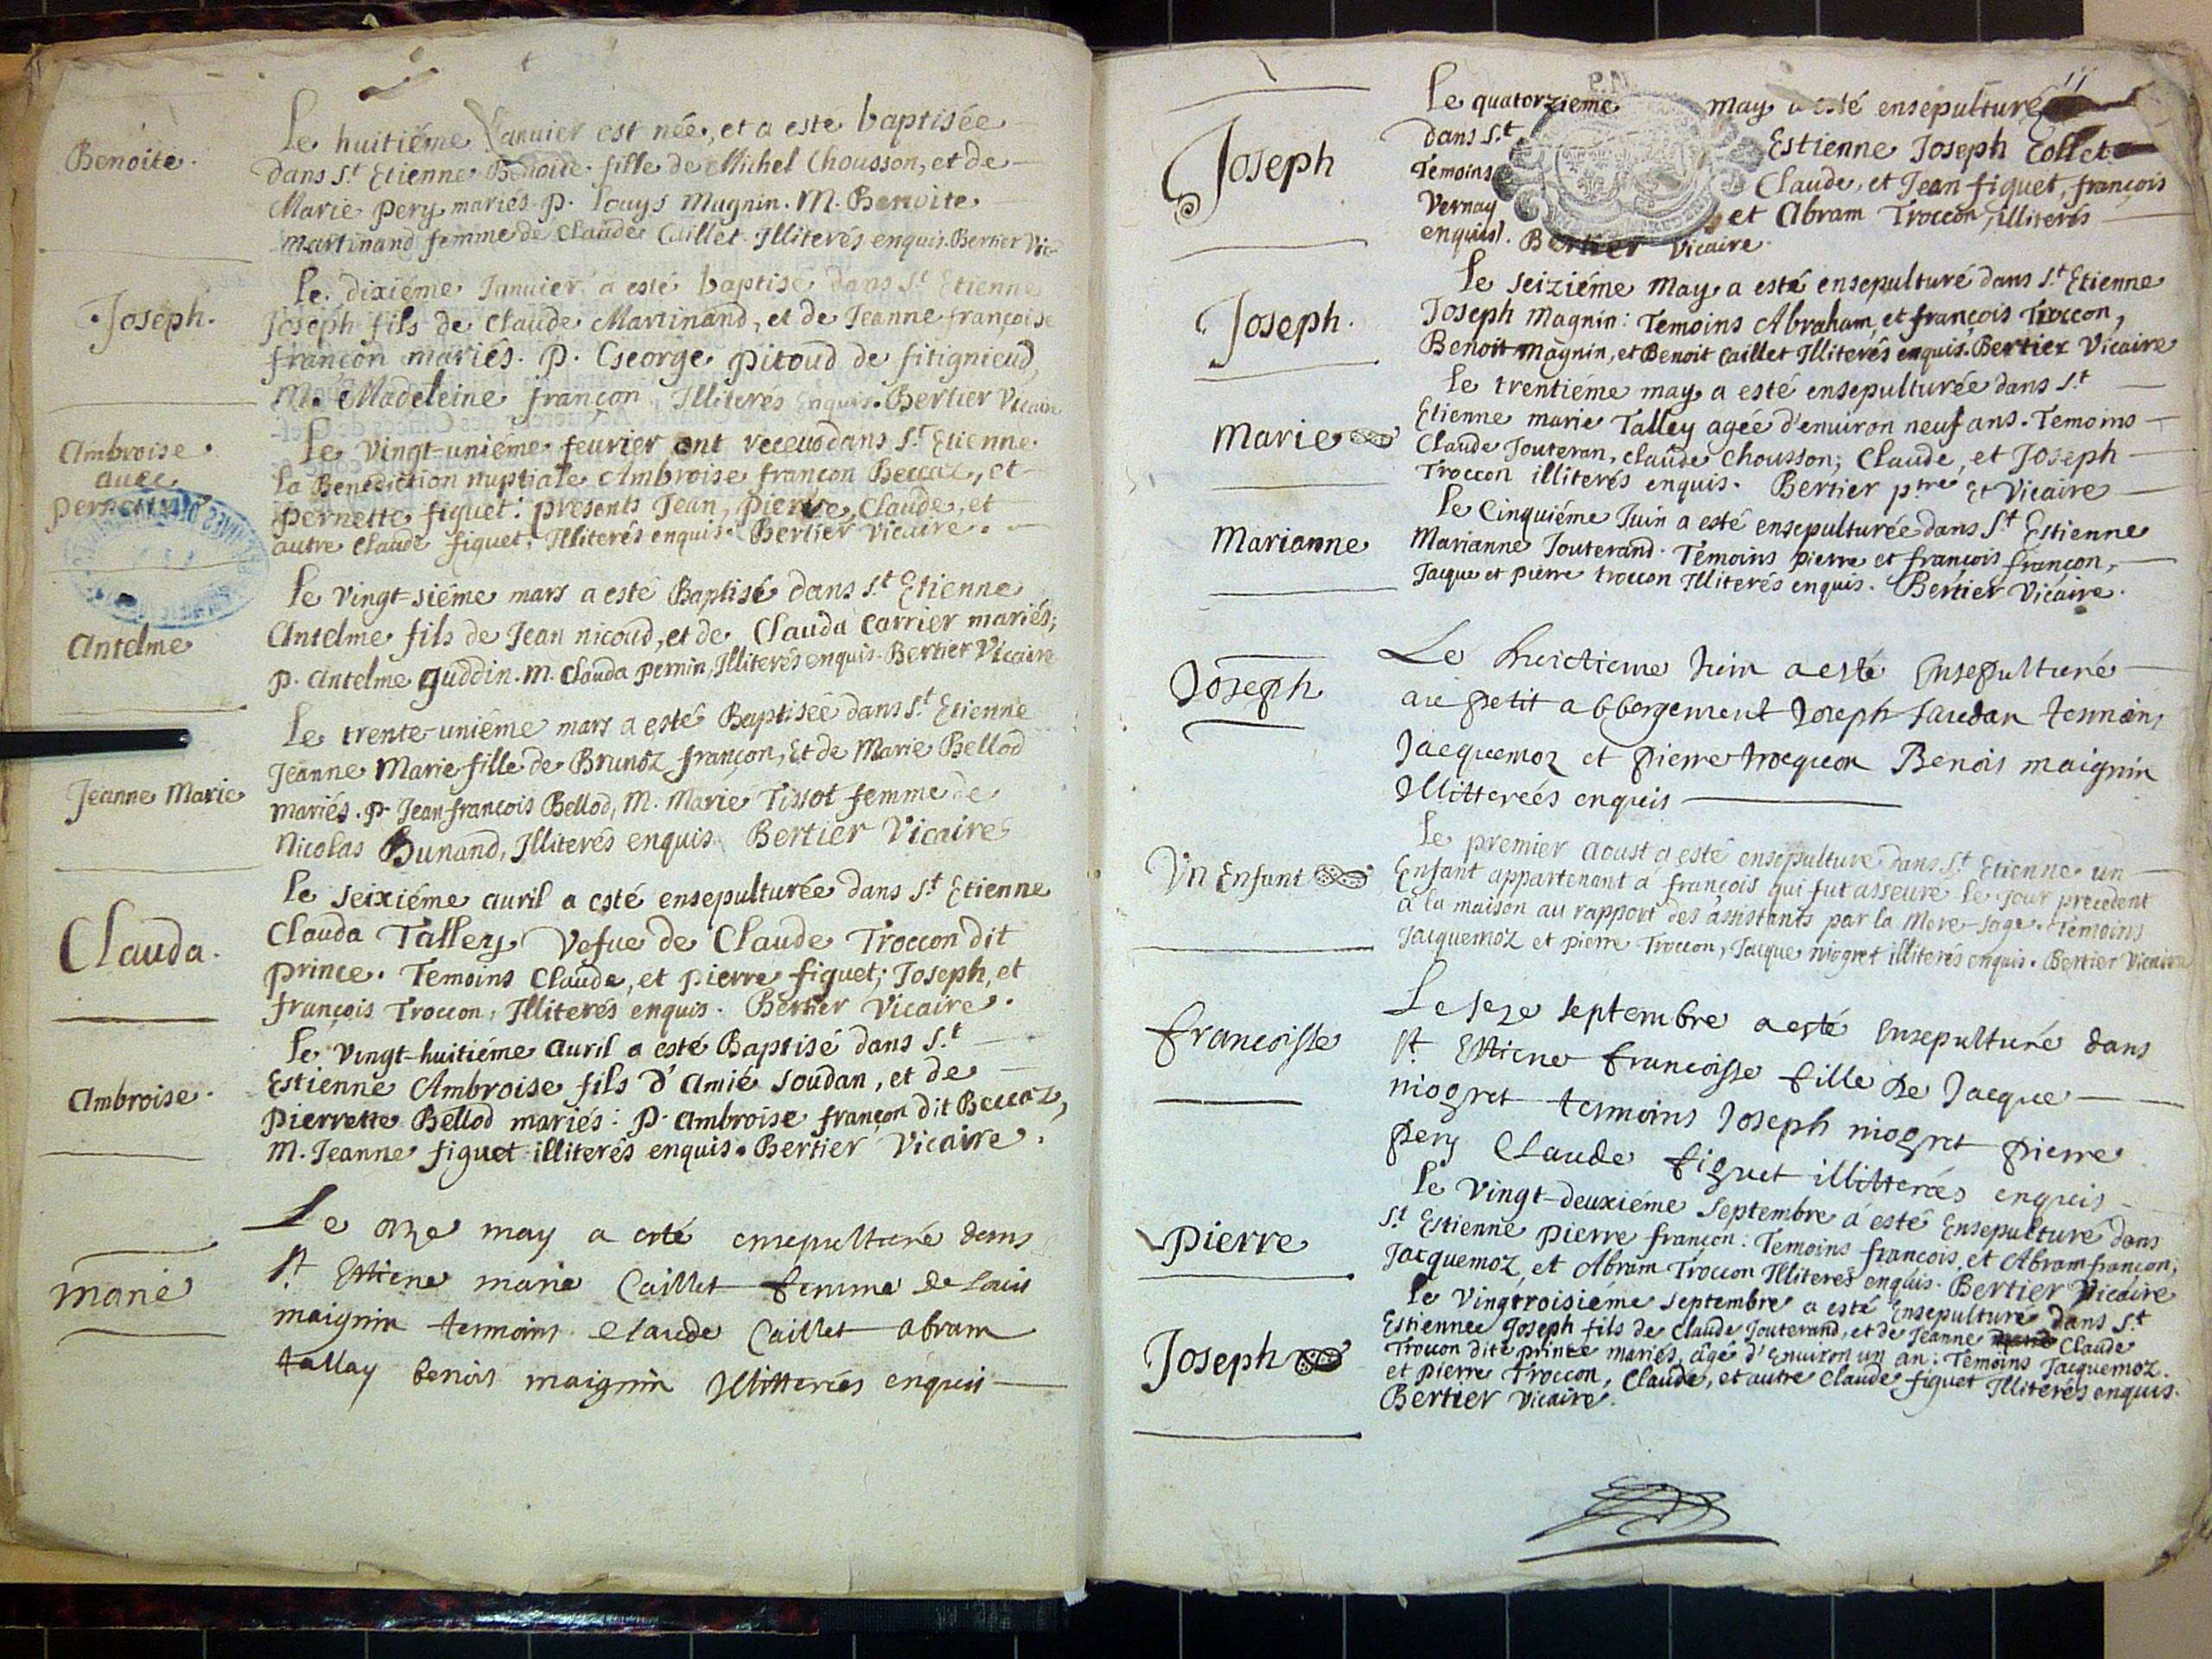 Benoite.
Le huitiéme Janvier est née, et a este baptisée
dans S.t Etienne Benoite fille de Michel Chousson, et de
Marie pery mariés. p. Louys Magnin. M. Benoite
martinand femme de Claude Caillet. Illiterés enquis. Bertier Vic.
Joseph.
Le dixiéme Januier a esté baptisé dans S.t Etienne
Joseph fils de Claude Martinand, et de Jeanne françoise
françon mariés. p. George pitoud de fitignieud,
M. Madeleine françon Illiterés enquis. Bertier Vicaire
Ambroise.
auec
pernette
Le vingt-uniéme feurier ont receu dans S.t Etienne
la Benediction nuptiale Ambroise françon Beccaz, et
pernette figuet: presents Jean, pierre, Claude, et
autre Claude figuet. Illiterés enquis. Bertier Vicaire.
Antelme
Le vingt siéme mars a esté Baptisé dans S.t Etienne
Antelme fils de Jean nicoud, et de Clauda Carrier mariés;
p. Antelme guddin. m. Clauda pernin, Illiterés enquis. Bertier Vicaire
Jeanne Marie
Le trente-uniéme mars a esté Baptisée dans S.t Etienne
Jeanne Marie fille de Brunoz françon, Et de Marie Bellod
mariés. p. Jean françois Bellod, M. Marie Tissot femme de
Nicolas Bunand, Illiterés enquis. Bertier Vicaire
Clauda.
Le seixiéme auril a esté ensepulturée dans S.t Etienne
Clauda Talley Vefue de Claude Troccon dit
prince. Temoins Claude, et pierre figuet; Joseph, et
françois Troccon, Illiterés enquis. Bertier Vicaire.
Ambroise.
Le vingt-huitiéme auril a esté Baptisé dans S.t
Estienne Ambroise fils d'Amié soudan, et de
pierrette Bellod mariés: p. Ambroise françon dit Beccaz,
M. Jeanne figuet illiterés enquis. Bertier Vicaire.
marie
Le onze may a esté ensepulturé dans
S.t Ettiene marie Caillet femme de Louis
maignin temoins Claude Caillet abram
tallay benois maignin Illitterées enquis
11
Joseph
Le quatorzieme may a esté ensepulturé
dans S.t Estienne Joseph Collet
Temoins Claude, et Jean figuet, françois
Vernay et Abram Troccon, illiterés
enquis. Bertier Vicaire.
Joseph.
Le seiziéme May a esté ensepulturé dans S.t Etienne
Joseph Magnin: Temoins Abraham, et françois Troccon,
Benoit magnin, et Benoit Caillet Illiterés enquis. Bertier Vicaire
Marie
Le trentiéme may a esté ensepulturée dans S.t
Etienne marie Talley agée d'enuiron neuf ans. Temoins
Claude Jouteran, claude Chousson; Claude, et Joseph
Troccon illiterés enquis. Bertier p.tre et Vicaire
Marianne
Le Cinquiéme Juin a esté ensepulturée dans S.t Estienne
Marianne Jouterand. Temoins pierre et françois françon,
Jacque et pierre troccon Illiterés enquis. Bertier Vicaire.
Joseph
Le huictieme Juin a esté Ensepulturé
au petit abbergement Joseph saudan temoins
Jacquemoz et pierre trocquon Benois maignin
Illitterées enquis
Vn Enfant
Le premier aoust a esté ensepulturé dans S.t Etienne un
Enfant appartenant a françois qui fut asseuré le jour precedent
a la maison au rapport des assistants par la Mere-sage. Temoins
Jacquemoz et pierre Troccon, Jacque niogret illiterés enquis. Bertier Vicaire
francoisse
Le seze septembre a esté Ensepulturé dans
S.t Ettiene francoisse fille De Jacque
niogret temoins Joseph niogret pierre
pery Claude figuet illitterées enquis
pierre
Le vingt-deuxiéme Septembre a esté Ensepulturé dans
S.t Estienne pierre françon: Temoins françois, et Abram françon;
Jacquemoz, et Abram Troccon Illiterés enquis. Bertier Vicaire
Joseph
Le Vingtroisiéme septembre a esté Ensepulturé dans S.t
Estiennee Joseph fils de Claude Jouterand, et de Jeanne Claude
Troccon dite prince mariés, âgé d'enuiron un an: Temoins Jacquemoz.
et pierre Troccon, Claude, et autre Claude figuet Illiterés enquis.
Bertier Vicaire.